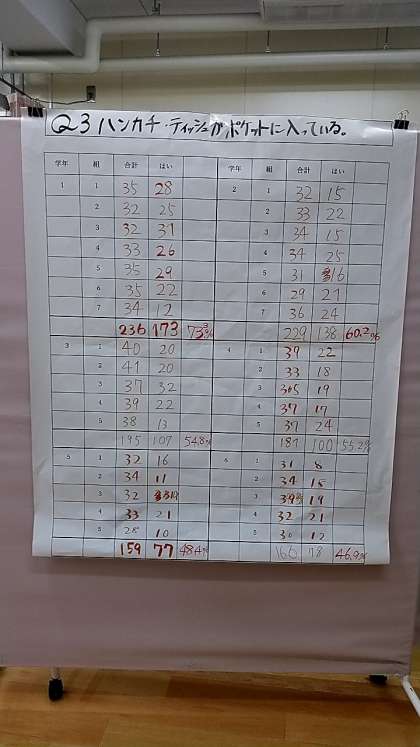 Q3 ハンカチ・ティッシュがポケットに入っている。
学年 組 合計 はい
1 1 35 28
2 32 25
3 32 31
4 33 26
5 35 29
6 35 22
7 34 12
236 173
学年 組 合計 はい
2 1 32 15
2 33 22
3 34 15
4 34 25
5 31 16
6 29 21
7 36 24
229 138 60.2%
3 1 40 20
2 41 20
3 37 32
4 39 22
5 38 13
195 107 54.8%
4 1 39 22
2 33 18
3 19
4 37 17
5 37 24
181 100 55.2%
5 1 32 16
2 34 11
3 32
4 33 21
5 28 10
159 77 48.4%
6 1 31 8
2 34 18
3 19
4 32 21
5 30 12
166 78 46.9%